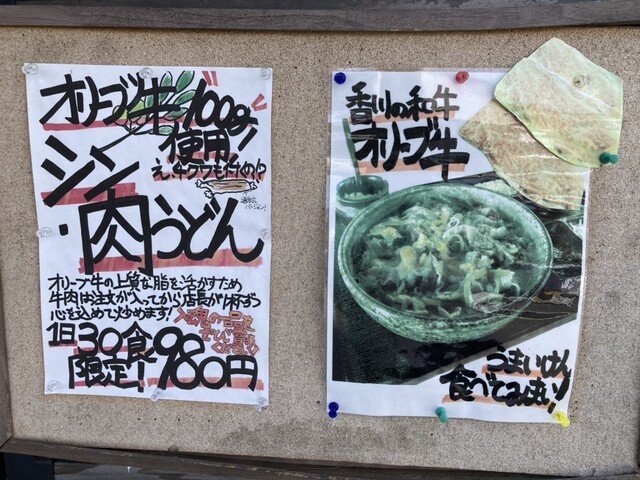 オリーブ牛100g
使用!
シン
・肉うどん
オリーブ牛の上質な脂を活かすため
牛肉は注文が入ってから店長が1杯ずつ
心を込めて炒めます!
入魂の一品を
ぜひご賞味
ください!
1日30食
限定!
980円
香川の和牛
オリーブ牛
うまいけん
食べてみまい!